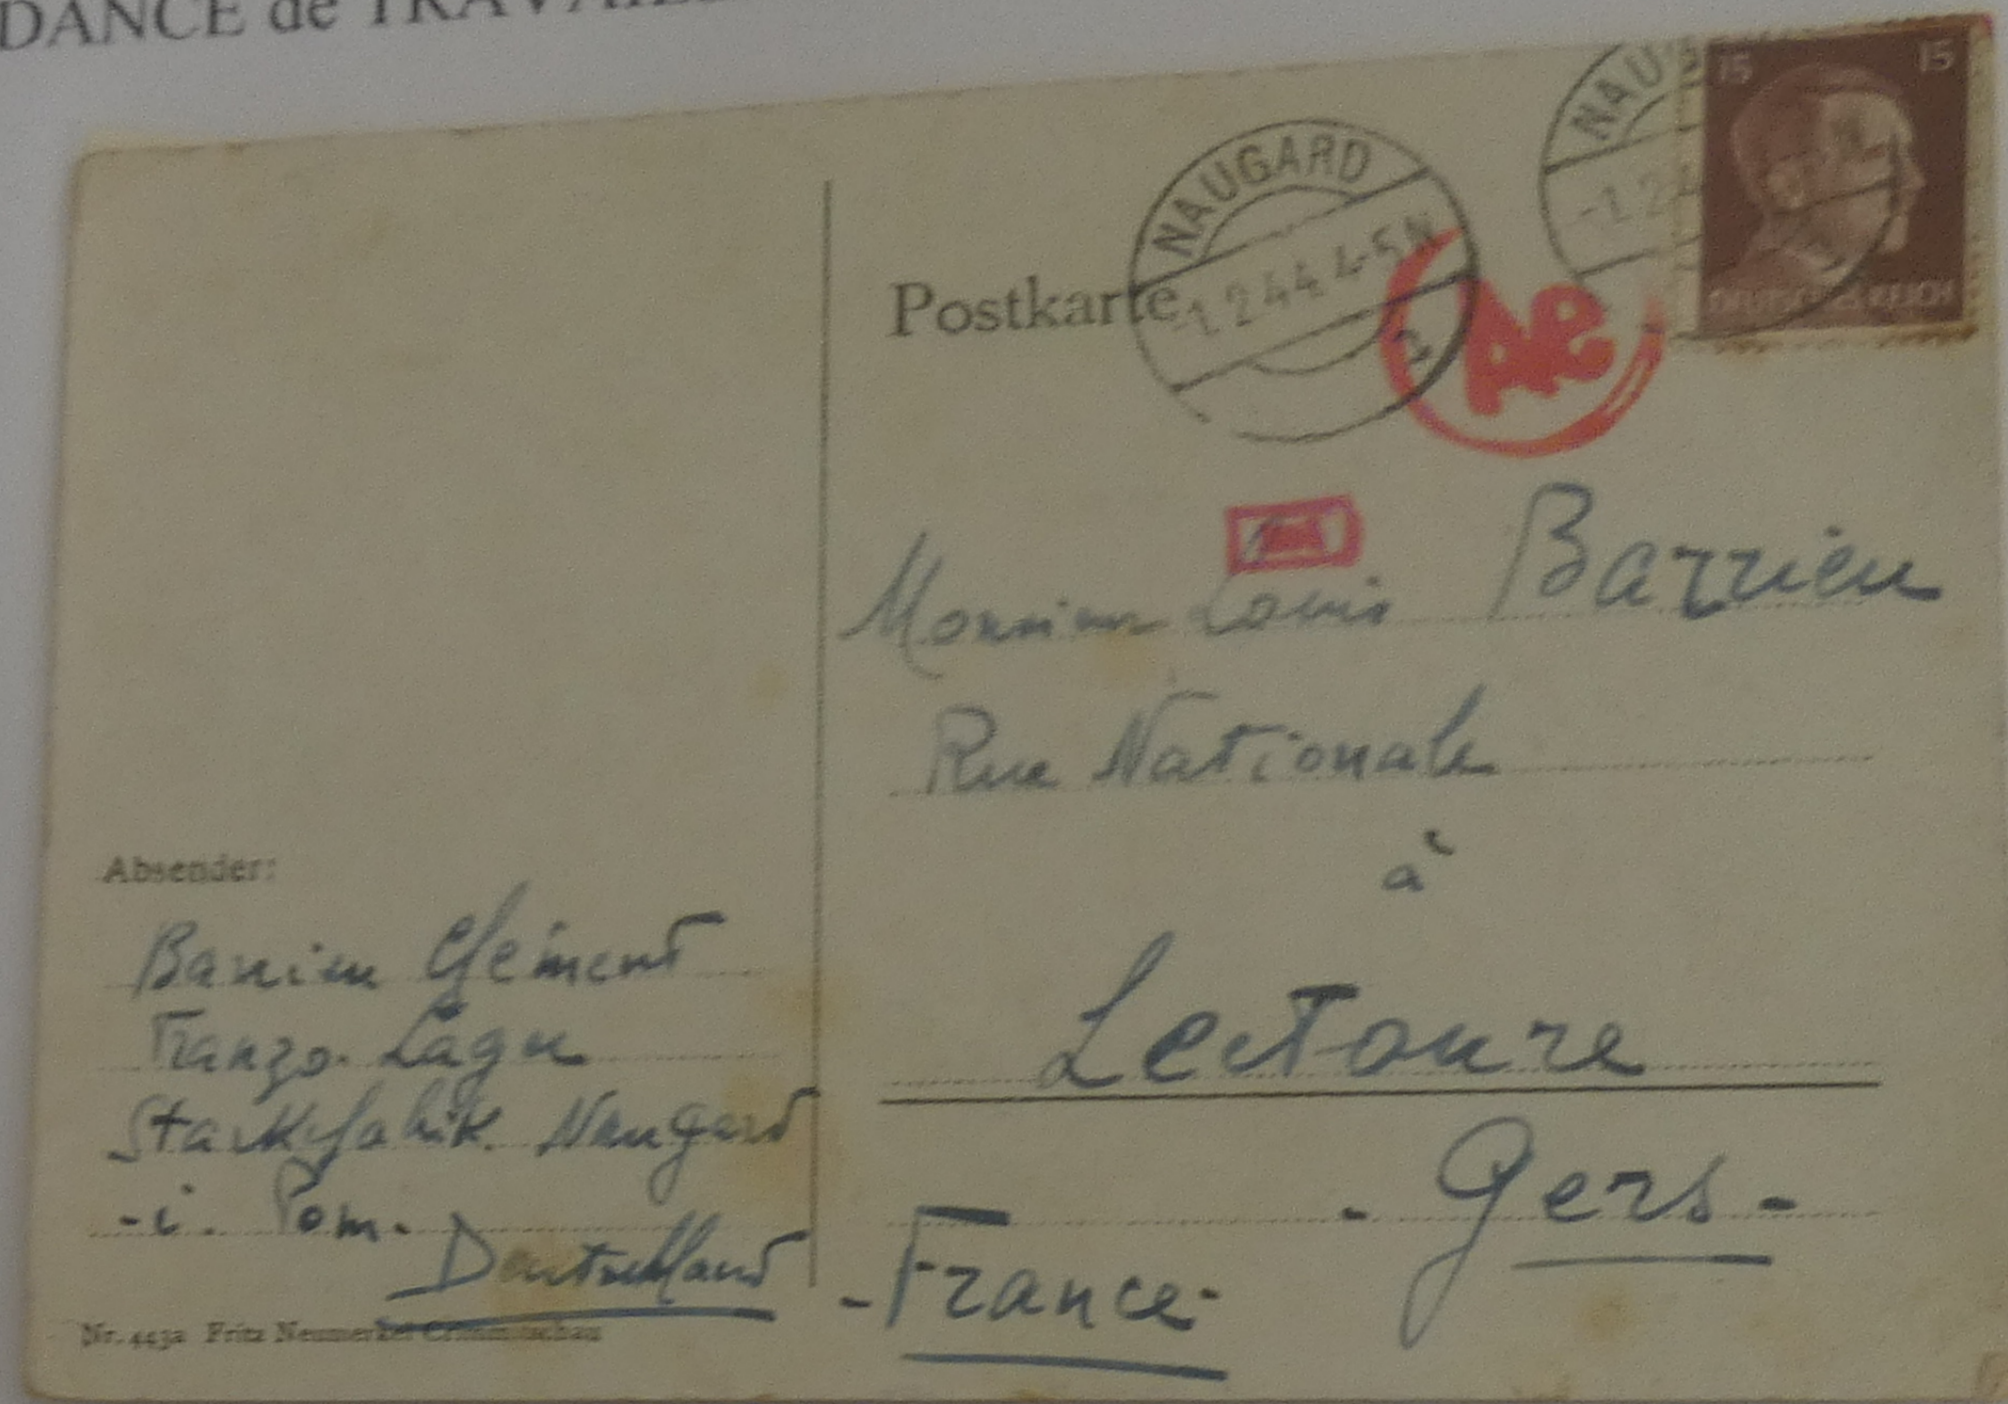 DANCE de TRAVAIL
NAUGARD
-1.2.44.4-5N
2
NAU
-1.2.4
15 15
DEUTSCHES REICH
Postkarte
Ae
Monsieur Louis Barrieu
Rue Nationale
à
Lectoure
- Gers -
- France -
Absender:
Barrieu Clément
Franzo. Lager
Starkefabrik. Naugard
- i. Pom.
Deutschland
Nr. 443a Fritz Neumerkel Crimmitschau